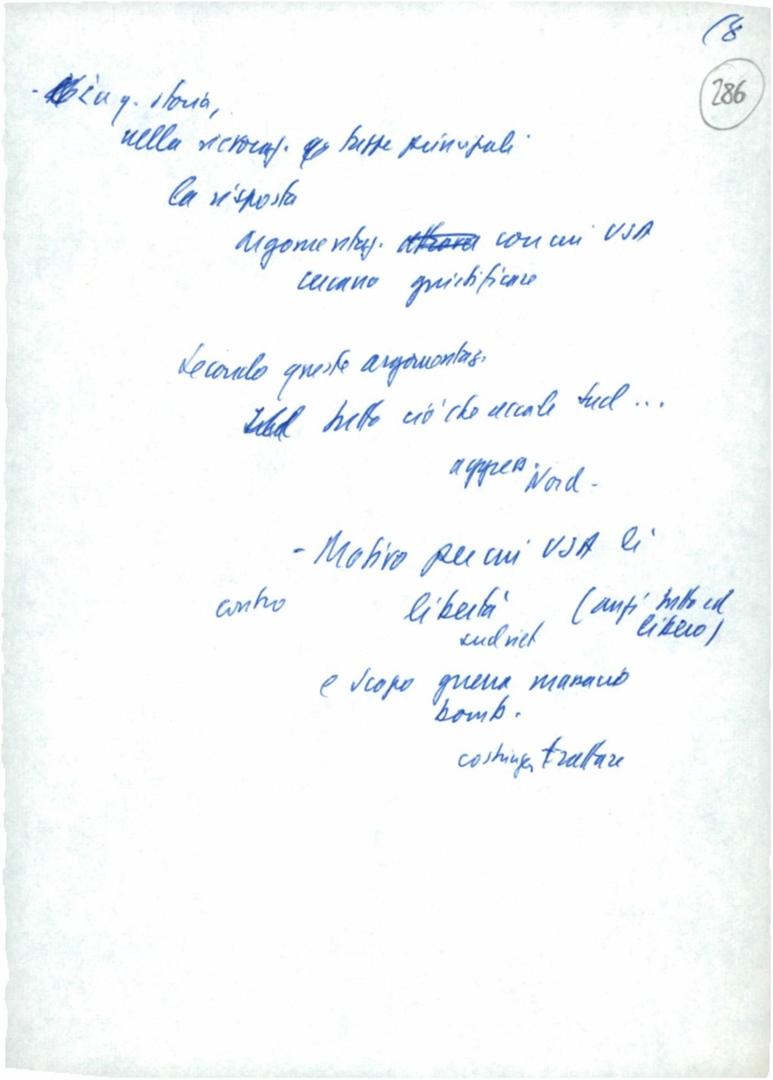 (8
286
- È in q. storia,
nella ricostruz. tappe principali
la risposta
argomentaz. con cui USA
cercano giustificare
secondo queste argomentaz.
tutto ciò che accade Sud ...
aggress. Nord -
- Motivo per cui USA lì
contro libertà (anzi tutto il
sudviet libero)
e scopo guerra
bomb.
costringer trattare